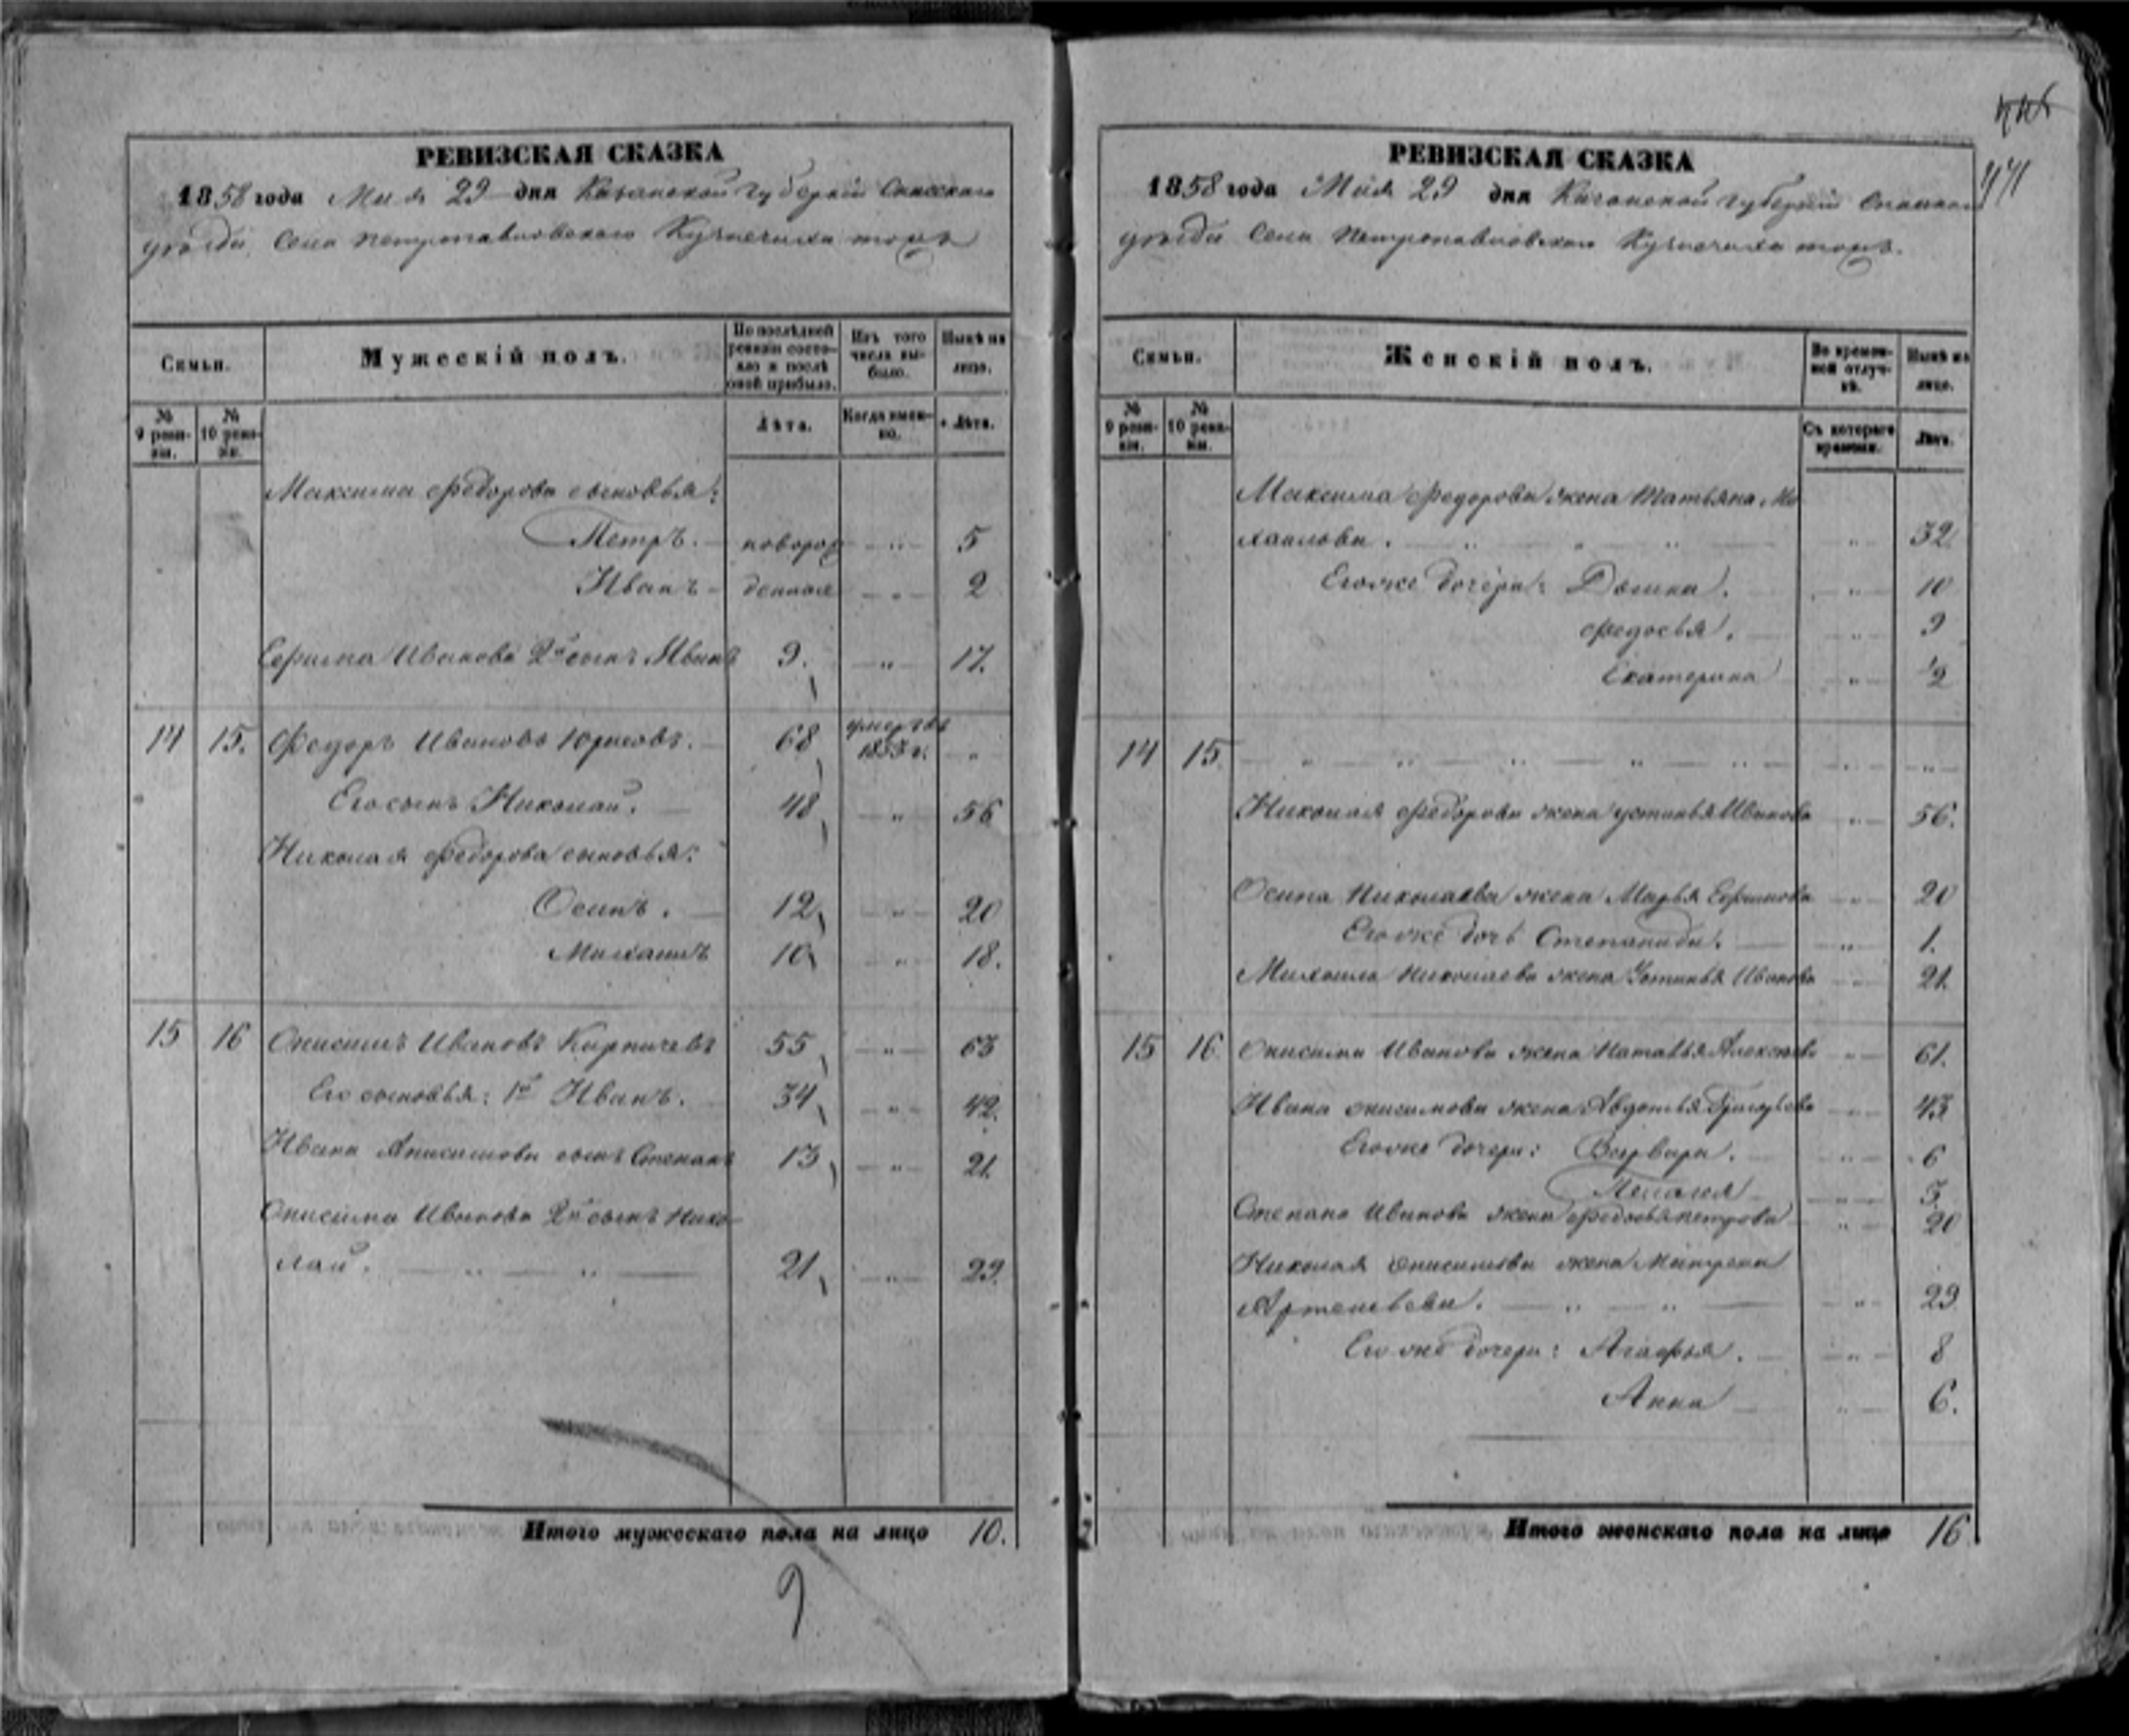 РЕВИЗСКАЯ СКАЗКА
1858 года Мая 29 дня Казанской Губерніи Спасскаго
уѣзда, Села Петропавловскаго Кузнечиха тожъ
Семьи.
Мужескій полъ.
По послѣдней ревизіи состояло и послѣ оной прибыло.
Изъ того числа выбыло.
Нынѣ на лицо.
№ 9 ревизіи.
№ 10 ревизіи.
Лѣта.
Когда именно.
Лѣта.
Максима Федорова сыновья:
Петръ. новорож „ 5
Иванъ денные „ 2
Ефима Иванова 2й сынъ Иванъ 9. „ 17.
14 15. Федоръ Ивановъ 68 умеръ въ 1853 г. „
Его сынъ Николай. 48 „ 56
Николая Федорова сыновья:
Осипъ. 12 „ 20
Михаилъ 10 „ 18.
15 16 Онисимъ Ивановъ Кирпичевъ 55 „ 63
Его сыновья: 1й Иванъ. 34 „ 42.
Ивана Анисимова сынъ Степанъ 13 „ 21.
Онисима Иванова 2й сынъ Нико-
лай. „ „ 21 „ 29.
Итого мужескаго пола на лицо 10.
9
446
441
РЕВИЗСКАЯ СКАЗКА
1858 года Мая 29 дня Казанской Губерніи Спасскаго
уѣзда Села Петропавловскаго Кузнечиха тожъ.
Семьи.
Женскій полъ.
Во временной отлучкѣ.
Нынѣ на лицо.
№ 9 ревизіи.
№ 10 ревизіи.
Съ котораго времени.
Лѣта.
Максима Федорова жена Татьяна Ми
хаилова. „ „ „ „ 32.
Его же дочери: Домна. „ 10
Федосья. „ 9
Екатерина „ 1/2
14 15. „ „ „ „ „ „ „
Николая Федорова жена Устинья Иванова „ 56.
Осипа Николаева жена Марья Ефимова „ 20
Его же дочь Степанида. „ 1.
Михаила Николаева жена Устинья Иванова „ 21.
15 16. Онисима Иванова жена Наталья Алексѣева „ 61.
Ивана Онисимова жена Авдотья Григорьева „ 43.
Его же дочери: Варвара. „ 6
Пелагея „ 3.
Степана Иванова жена Федосья Петрова „ 20
Николая Онисимова жена Матрена
Артемьева. „ „ „ 29
Его же дочери: Агафья. „ 8
Анна „ 6.
Итого женскаго пола на лицо 16